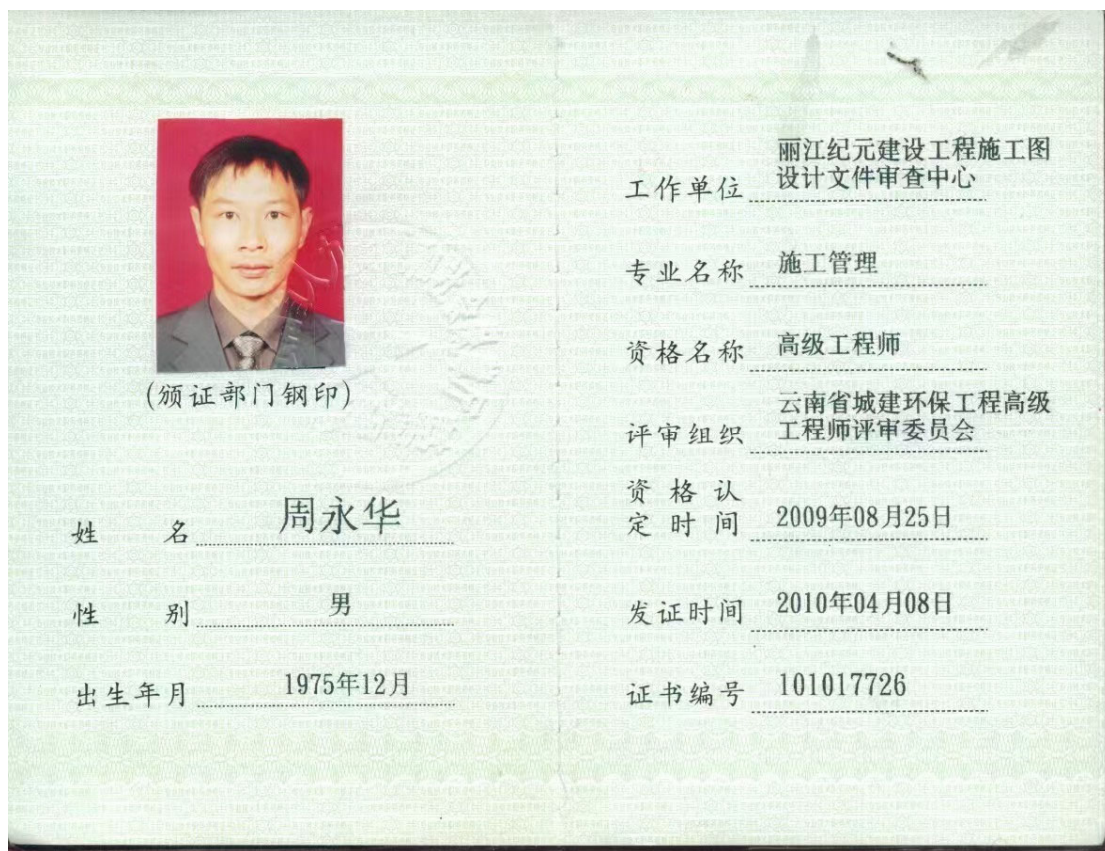 (颁证部门钢印)
姓名 周永华
性别 男
出生年月 1975年12月
丽江纪元建设工程施工图
工作单位 设计文件审查中心
专业名称 施工管理
资格名称 高级工程师
云南省城建环保工程高级
评审组织 工程师评审委员会
资格认
定时间 2009年08月25日
发证时间 2010年04月08日
证书编号 101017726